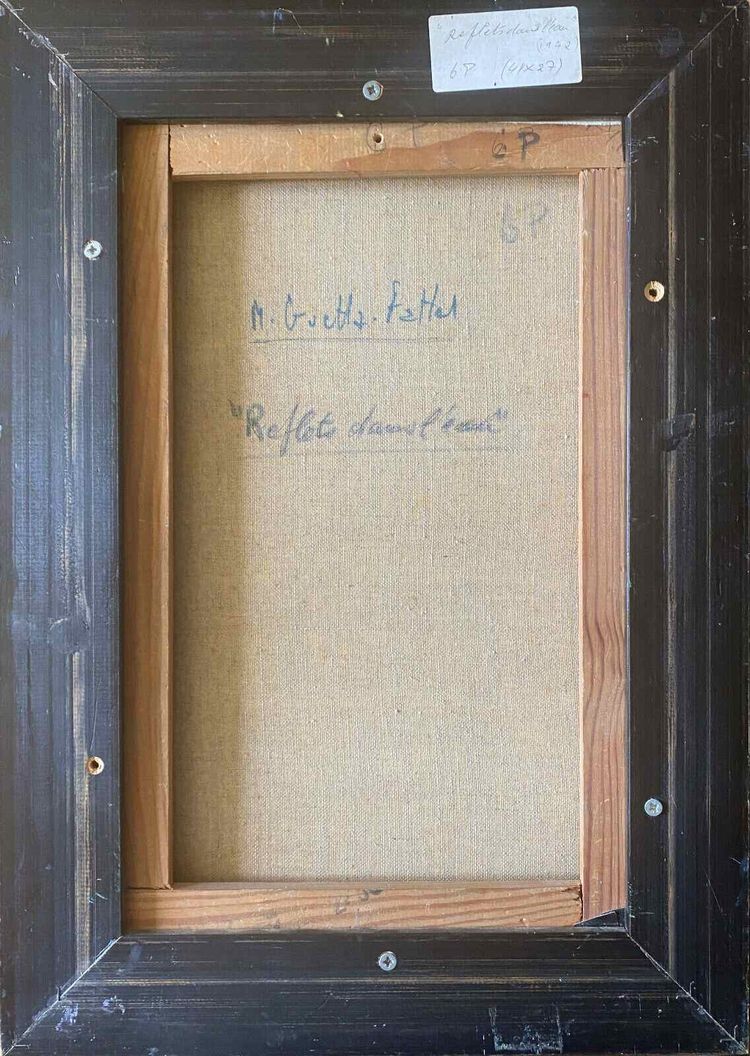 "Reflets dans l'eau"
6P (41x27)
6P
6P
M. Guetta. Fattal
"Reflets dans l'eau"